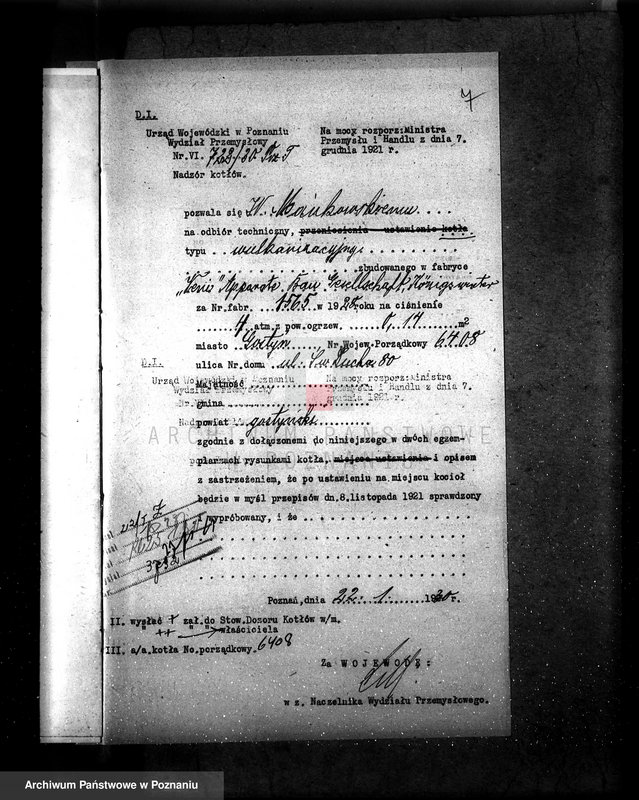 7
D.I.
Urząd Wojewódzki w Poznaniu
Wydział Przemysłowy
Nr.VI. 723/30 Prz T
Nadzór kotłów.
Na mocy rozporz:Ministra
Przemysłu i Handlu z dnia 7.
grudnia 1921 r.
pozwala się W. Mańkowskiemu
na odbiór techniczny, przeniesienie ustawienie kotła
typu wulkanizacyjny
zbudowanego w fabryce
Apparate Bau Gesellschaft, Königswinter
za Nr.fabr. 1565 w 1928 roku na ciśnienie
4 atm.z pow.ogrzew. 0,14 m²
miasto Gostyń Nr.Wojew.Porządkowy 6408
ulica Nr.domu ul: Św. Ducha 80
D.I.
Urząd Wojewódzki w Poznaniu
Wydział Przemysłowy
Na mocy rozporz:Ministra
Przemysłu i Handlu z dnia 7.
grudnia 1921 r.
Majętność
gmina
powiat gostyński
ARCHIWUM PAŃSTWOWE
zgodnie z dołączonemi do niniejszego w dwóch egzem-
plarzach rysunkami kotła, miejsca ustawienia i opisem
z zastrzeżeniem, że po ustawieniu na miejscu kocioł
będzie w myśl przepisów dn.8.listopada 1921 sprawdzony
i wypróbowany, i że
Poznań,dnia 22. 1. 1930r.
II. wysłać + zał.do Stow.Dozoru Kotłów w/m.
++ " " właściciela
III. a/a.kotła No.porządkowy. 6408
Za WOJEWODĘ:
w z. Naczelnika Wydziału Przemysłowego.
Archiwum Państwowe w Poznaniu